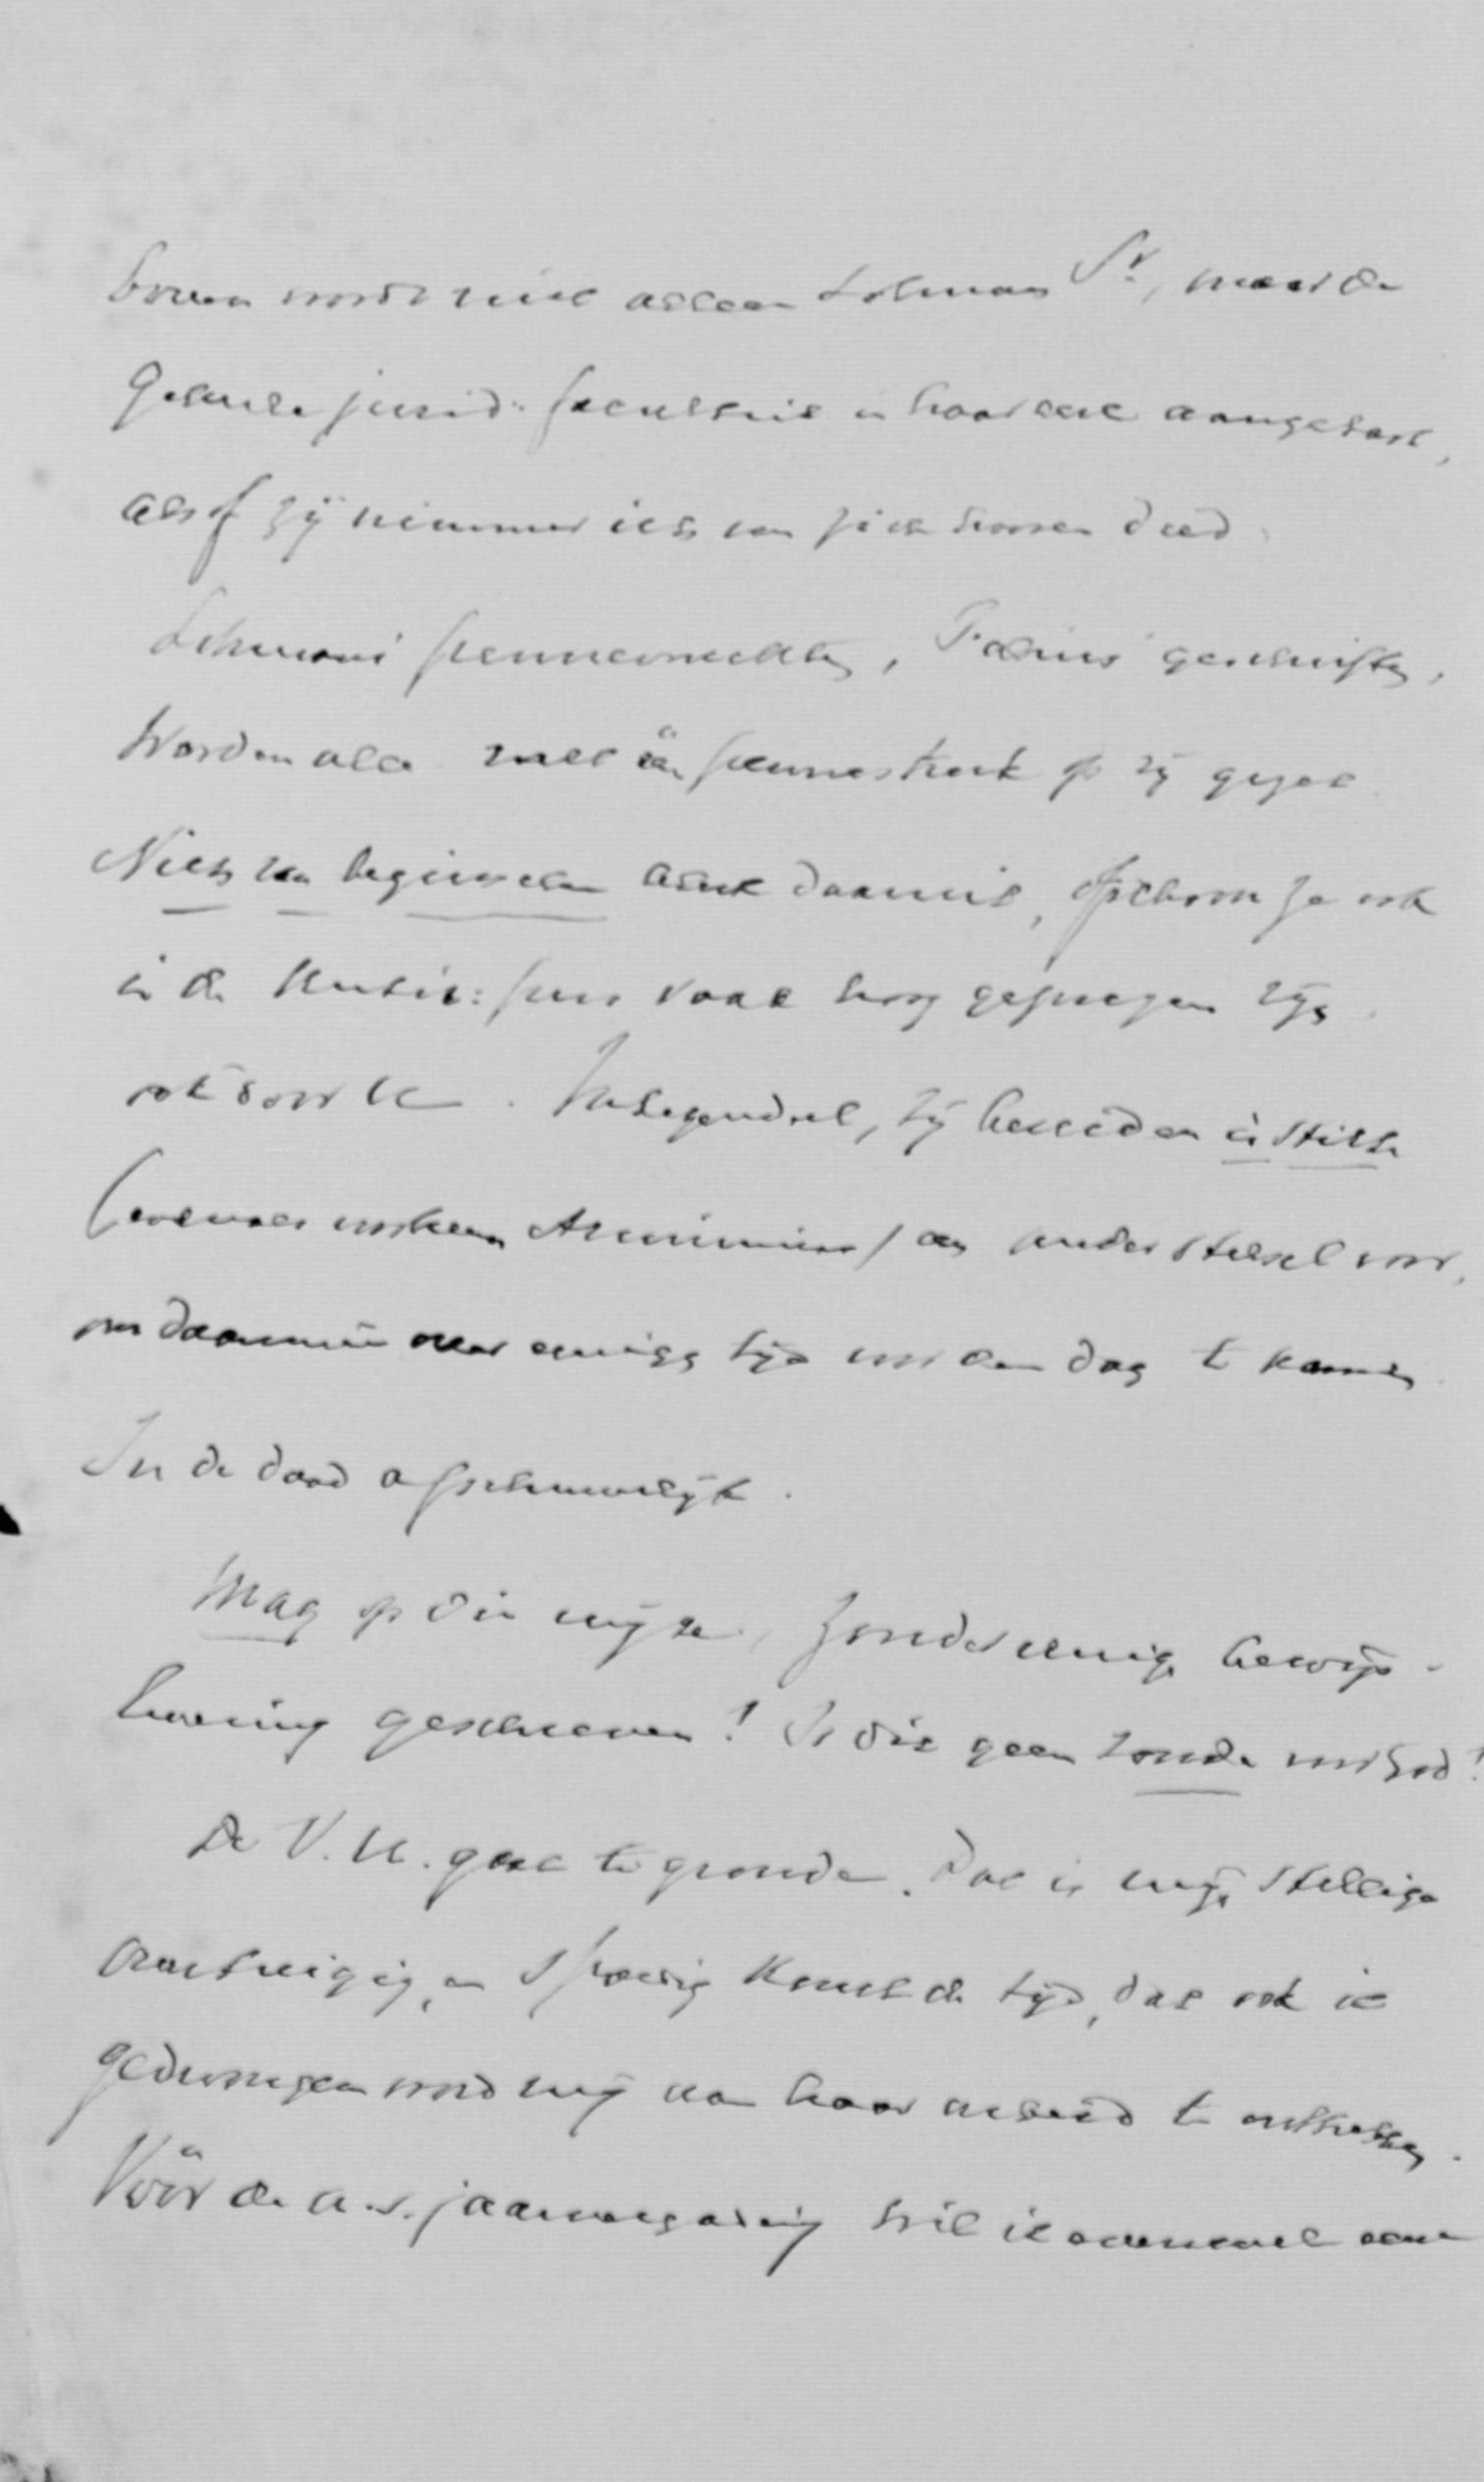 boven wordt niet alleen Lohman Sr, maar de
geheele jurid: faculteit in haar eer aangetast,
alsof zij nimmer iets van zich hooren deed.
Lohmans pennevruchten, Fabius' geschriften,
worden alle met één pennestreek op zij gezet.
Niets van beginselen blijkt daaruit, ofschoon ze ook
in de Antir: pers vaak hoog geprezen zijn
ook door U. Integendeel, zij bereiden in stilte
(evenals weleer Arminius) een ander stelsel voor,
om daarmeê over eenigen tijd voor den dag te komen.
In de daad afschuwelijk.
Mag op die wijze, zonder eenige bewijs-
voering geschreven! Is dit geen zonde voor God!
De V.U. gaat te gronde. Dat is mijn stellige
overtuiging, en spoedig komt de tijd, dat ook ik
gedwongen word mij aan haar arbeid te onttrekken.
Vóór de a.s. jaarvergadering wil ik evenwel eene